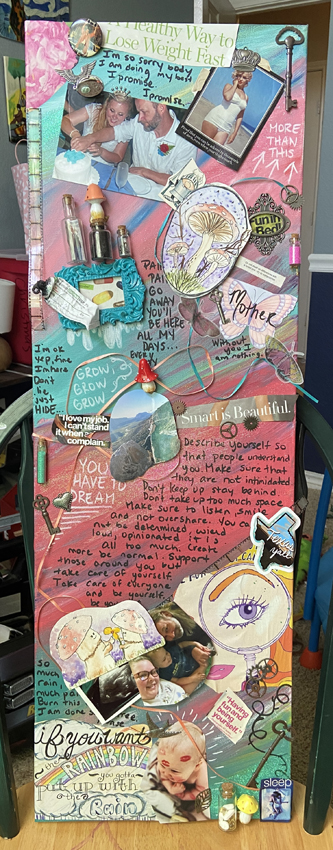 A Healthy Way to
Lose Weight Fast
I'm so sorry body,
I am doing my best
I promise.
I promise.
MORE
THAN
THIS
Fun in
Red!
PAIN
PAIN
GO
AWAY
YOU'LL
BE HERE
ALL MY
DAYS...
EVERY
Mother
Without you
I am nothing.
I'm ok
yep, fine
I'm here
Don't
be
just
HIDE
GROW,
GROW
GROW
"I love my job.
I can't stand
it when
complain.
Smart is Beautiful.
YOU
HAVE TO
DREAM
Describe yourself so
that people understand
you. Make sure that
they are not intimidated
Don't keep up stay behind.
Don't take up too much space
Make sure to listen, smile
and not overshare. You can
not be determined, weird
loud, opionated it is
all too much. Create
more be normal. Support
those around you but
take care of yourself.
Take care of everyone
and be yourself.
be
Texas
y'all
"Having
fun and
being
yourself."
so
much
rain,
much pain
Burn this
I am done
if you want
the RAINBOW
you gotta
put up with
the Rain
sleep